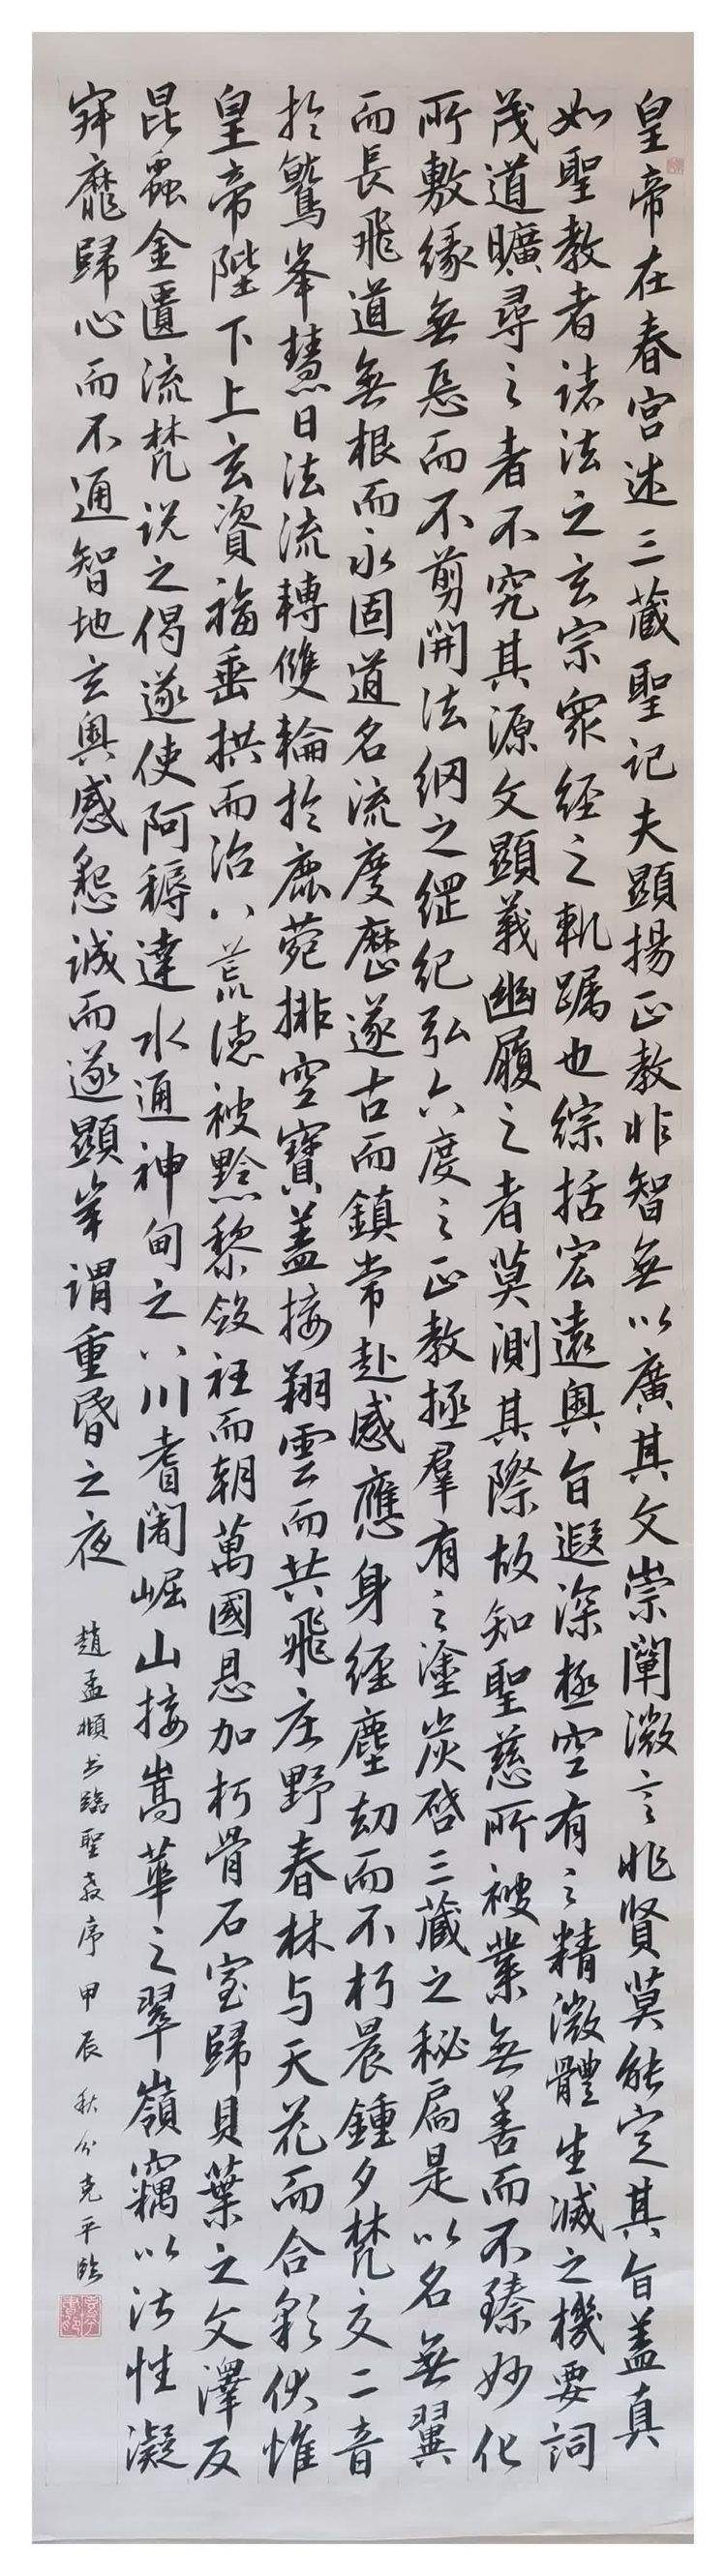 皇帝在春宮述三藏聖記夫顯揚正教非智無以廣其文崇闡微言非賢莫能定其旨蓋真
如聖教者諸法之玄宗眾經之軌躅也綜括宏遠奧旨遐深極空有之精微體生滅之機要詞
茂道曠尋之者不究其源文顯義幽履之者莫測其際故知聖慈所被業無善而不臻妙化
所敷緣無惡而不剪開法綱之綱紀弘六度之正教拯羣有之塗炭啓三藏之秘扃是以名無翼
而長飛道無根而永固道名流慶歷遂古而鎮常赴感應身經塵劫而不朽晨鍾夕梵交二音
於鷲峯慧日法流轉雙輪於鹿菀排空寶蓋接翔雲而共飛庄野春林与天花而合彩伏惟
皇帝陛下上玄資福垂拱而治八荒德被黔黎斂衽而朝萬國恩加朽骨石室歸貝葉之文澤及
昆蟲金匱流梵說之偈遂使阿耨達水通神甸之八川耆闍崛山接嵩華之翠嶺竊以法性凝
寂靡歸心而不通智地玄奧感懇誠而遂顯豈謂重昏之夜
趙孟頫書臨聖教序甲辰秋分克平臨